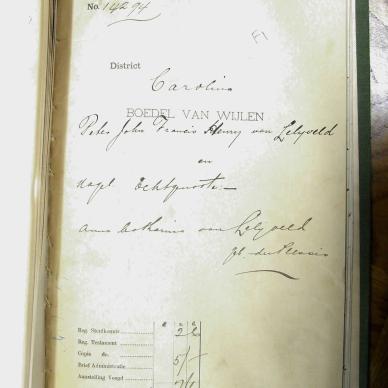 No. 14294
F1
District
Carolina
BOEDEL VAN WIJLEN
Peter John Francis Henry van Lelyveld
en
nagel. Echtgenoote.
Anna Catharina van Lelyveld
geb. du Plessis
Reg. Sterfkennis
Reg. Testament
Copie do.
Brief Administratie 5/-
Aanstelling Voogd